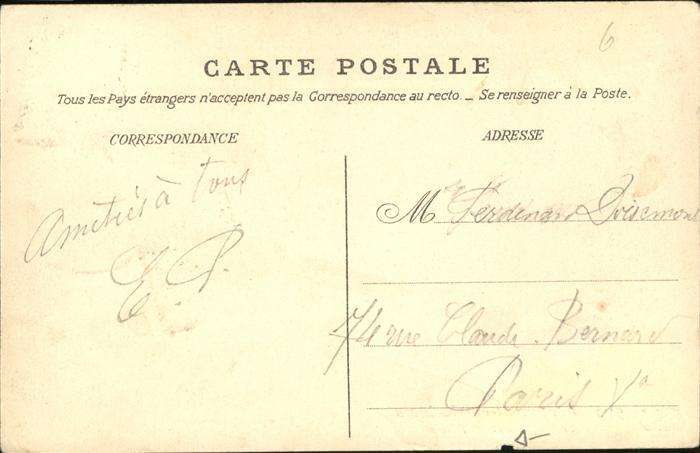 6
CARTE POSTALE
Tous les Pays étrangers n'acceptent pas la Correspondance au recto. _ Se renseigner à la Poste.
CORRESPONDANCE
Amitiés à tous
E. P.
ADRESSE
M Ferdinand
74 rue Claude Bernard
Paris Vº